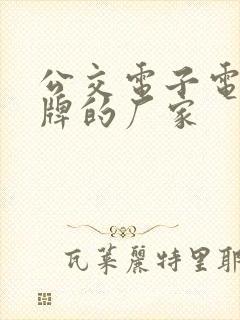 公交電子電
牌的厂家
瓦萊麗特里耶